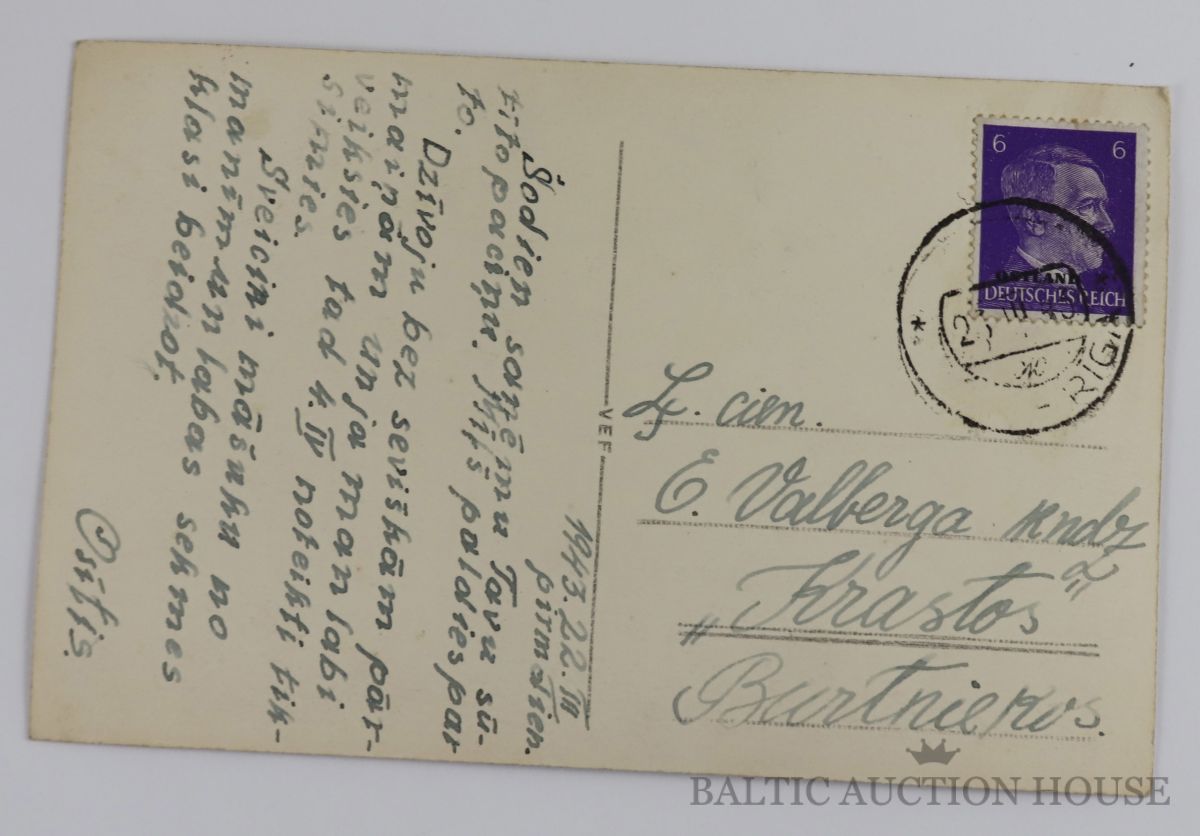 1943.22.III
pirmdien.
Šodien saņēmu Tavu sū-
tito paciņu. Mīļš paldies par
to.
Dzīvoju bez sevišķām pār-
maiņām un ja man labi
veiksies tad 4.IV noteikti tik-
simies.
Sveicini māsiņu no
manim un labas sekmes
klasi beidzot,
Osītis.
VEF
Ļ. cien.
E. Valberga kndz
"Krastos"
Burtniekos.
6 6
OSTLAND
DEUTSCHES REICH
RIGA
BALTIC AUCTION HOUSE